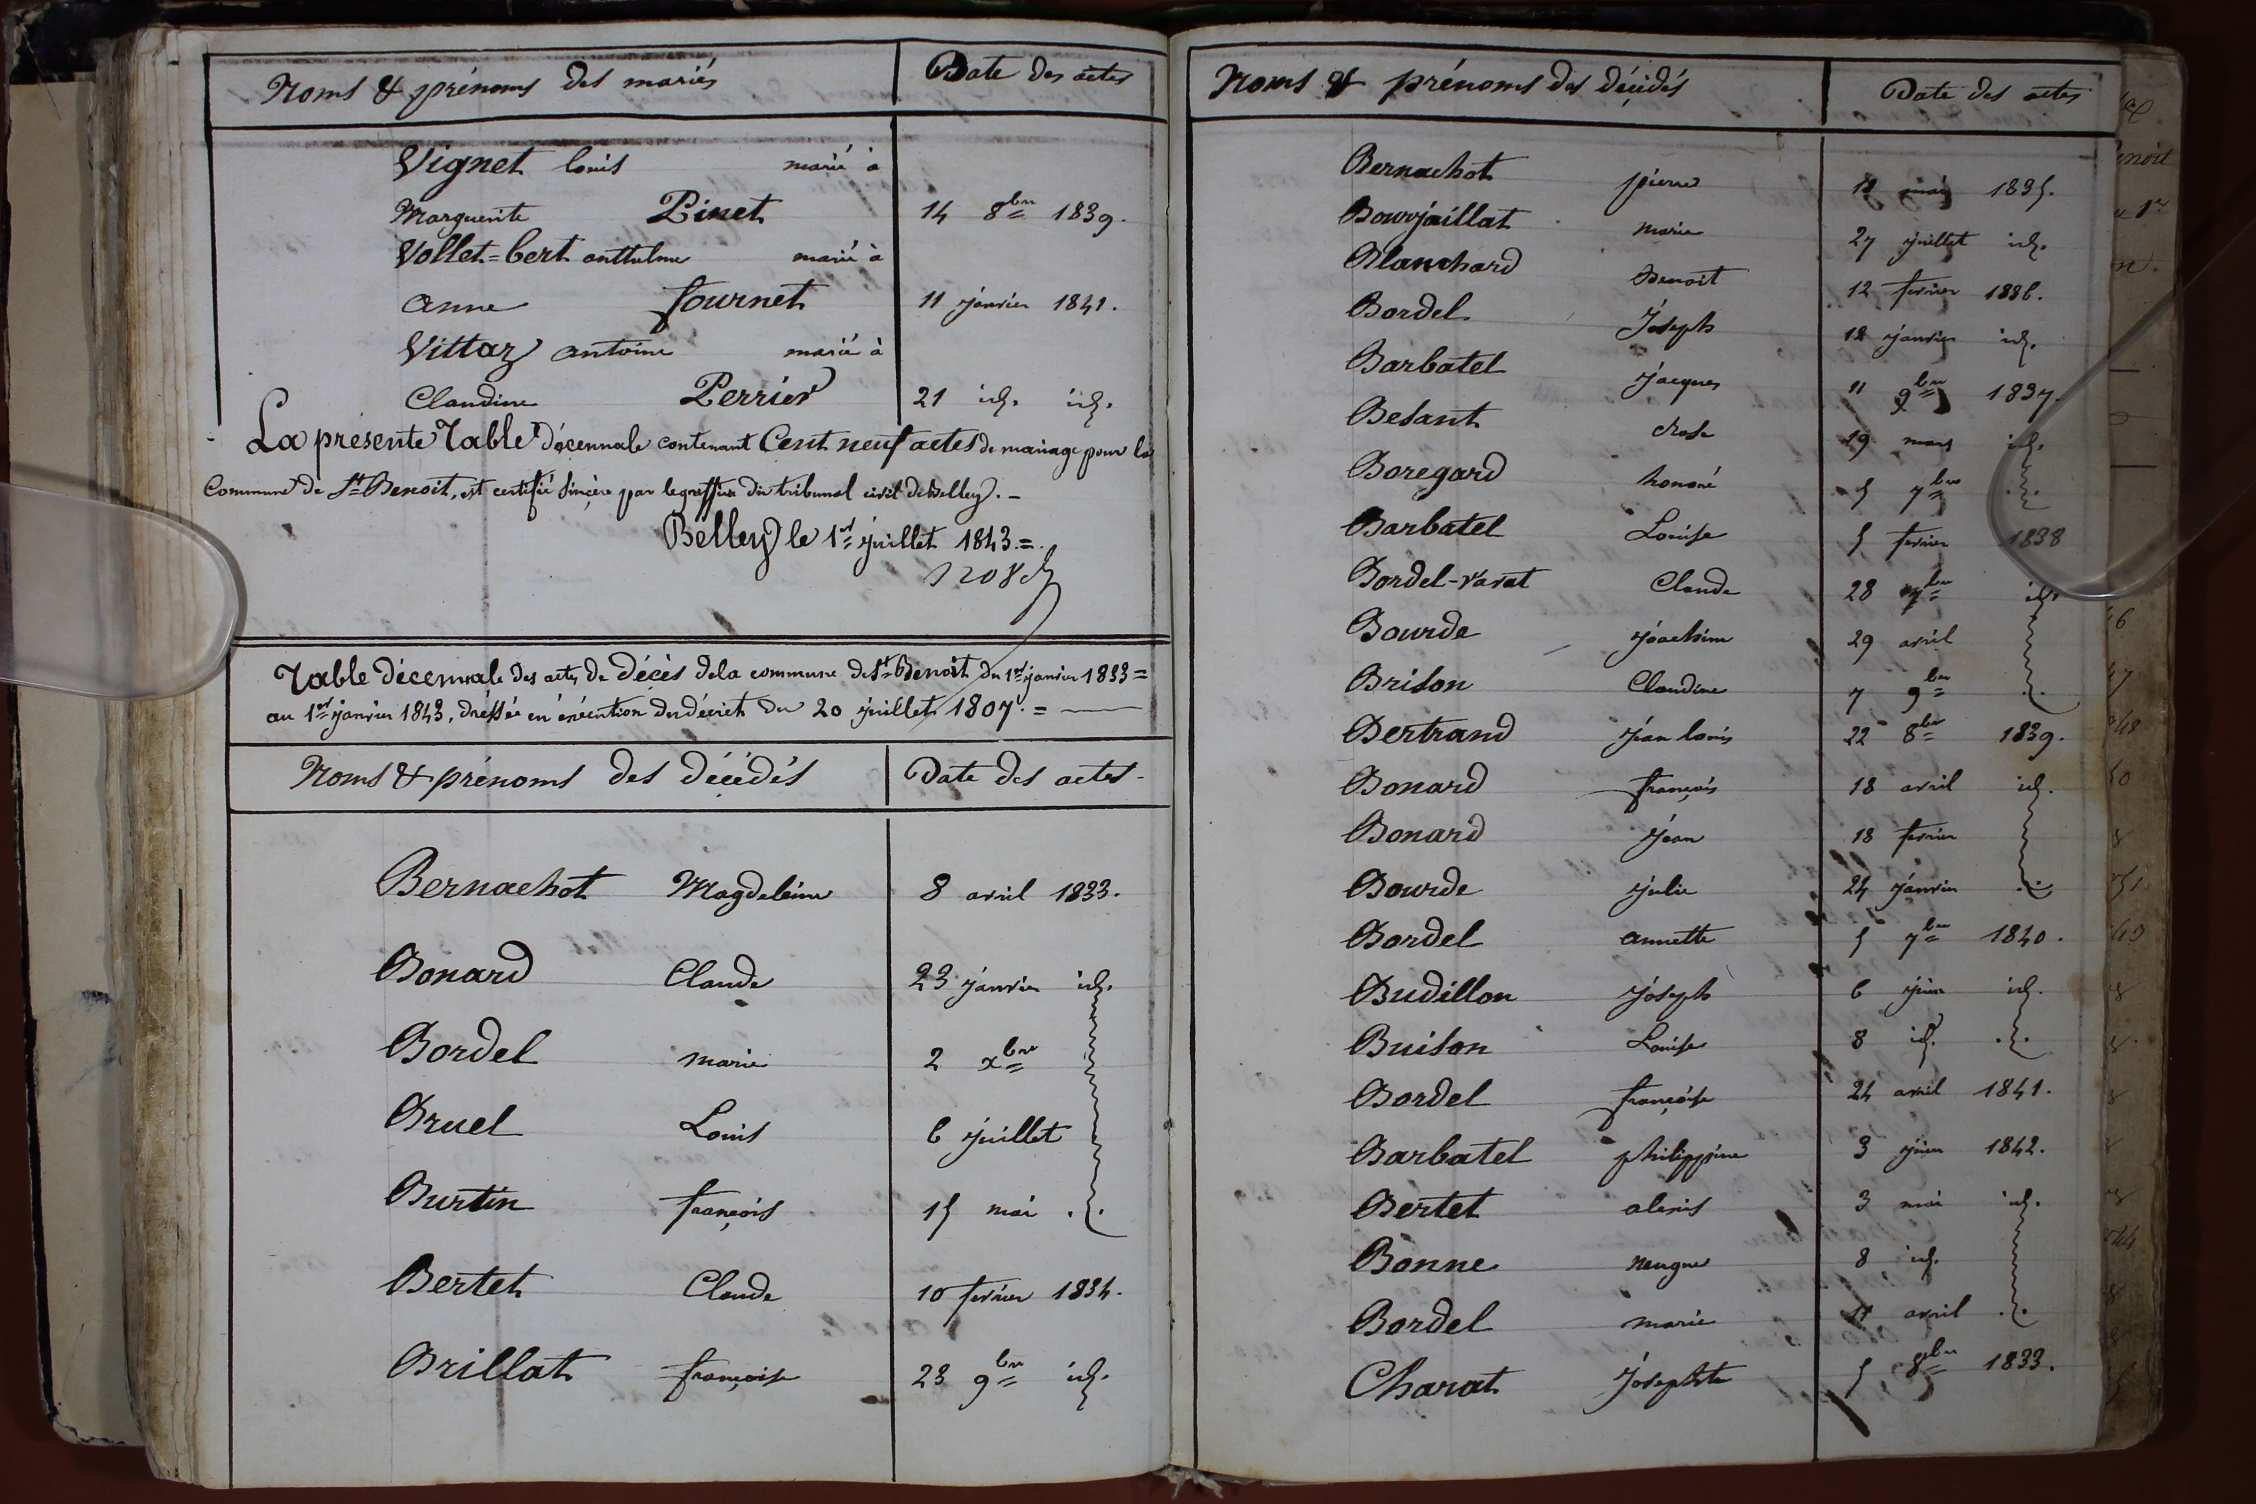 Noms & prénoms des mariés Date des actes
Vignet louis marié à
Marguerite Pinet 14 8bre 1839.
Vollet=bert anthelme marié à
anne fournet 11 janvier 1841.
Vittoz antoine marié à
Claudine Perrier 21 id. id.
La présente Table décennale contenant Cent neuf actes de mariage pour la
Commune de St Benoit, est certifié sincère par le greffier du tribunal civil de Belley. -
Belley le 1er juillet 1843.=.
Table décennale des actes de Décès de la commune de St Benoit du 1er janvier 1833=
au 1er janvier 1843, dréssée en éxécution du décret du 20 juillet 1807. =
Noms & prénoms des décédés Date des actes-
Bernachot Magdeleine 8 avril 1833.
Bonard Claude 23 janvier id.
Bordel marie 2 xbre
Bruel Louis 6 juillet
Burtin françois 15 mai
Bertet Claude 10 fevrier 1834.
Brillat françoise 23 9bre id.
Noms & prénoms des décédés Date des actes
Bernachot pierre mai 1835.
Bouvjaillat marie 27 juillet id.
Blanchard Benoit 12 fevrier 1836.
Bordel Joseph 12 janvier id.
Barbatel Jacques 11 9bre 1837.
Besant rose 19 mars id.
Boregard honoré 5 7bre
Barbatel Louise 5 fevrier 1838
Bordel-varat Claude 28 7bre id.
Bourde joachim 29 avril
Brison Claudine 7 9bre
Bertrand jean louis 22 8bre 1839.
Bonard françois 18 avril id.
Bonard jean 18 fevrier
Bourde julie 24 janvier
Bordel annette 5 7bre 1840.
Budillon joseph 6 juin id.
Buison Louise 8 id.
Bordel françoise 24 avril 1841.
Barbatel philippine 3 juin 1842.
Bertet alexis 3 mai id.
Bonne 8 id.
Bordel marie 11 avril
Charat Josephte 5 8bre 1833.